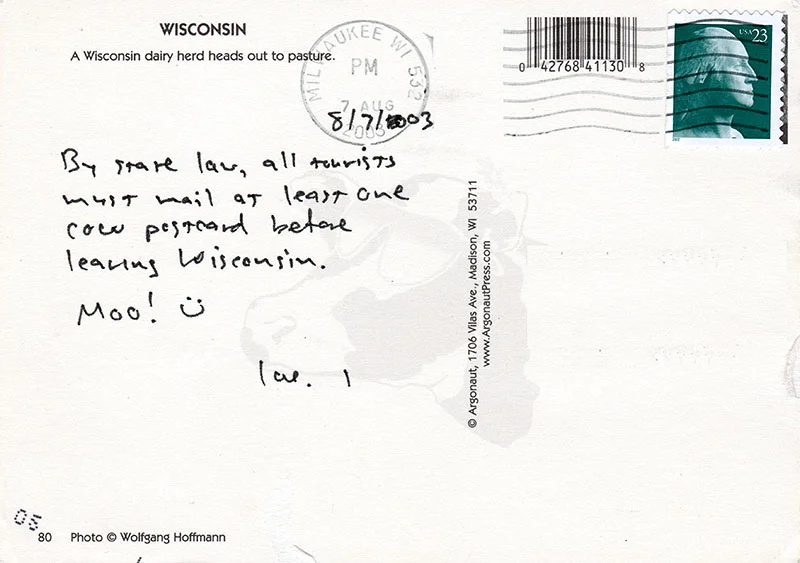 WISCONSIN
A Wisconsin dairy herd heads out to pasture.
MILWAUKEE WI 532
PM
7 AUG
2003
8/7/2003
0 42768 41130 8
USA 23
By state law, all tourists
must mail at least one
cow postcard before
leaving Wisconsin.
Moo! ☺
© Argonaut, 1706 Vilas Ave., Madison, WI 53711
www.ArgonautPress.com
05
80 Photo © Wolfgang Hoffmann